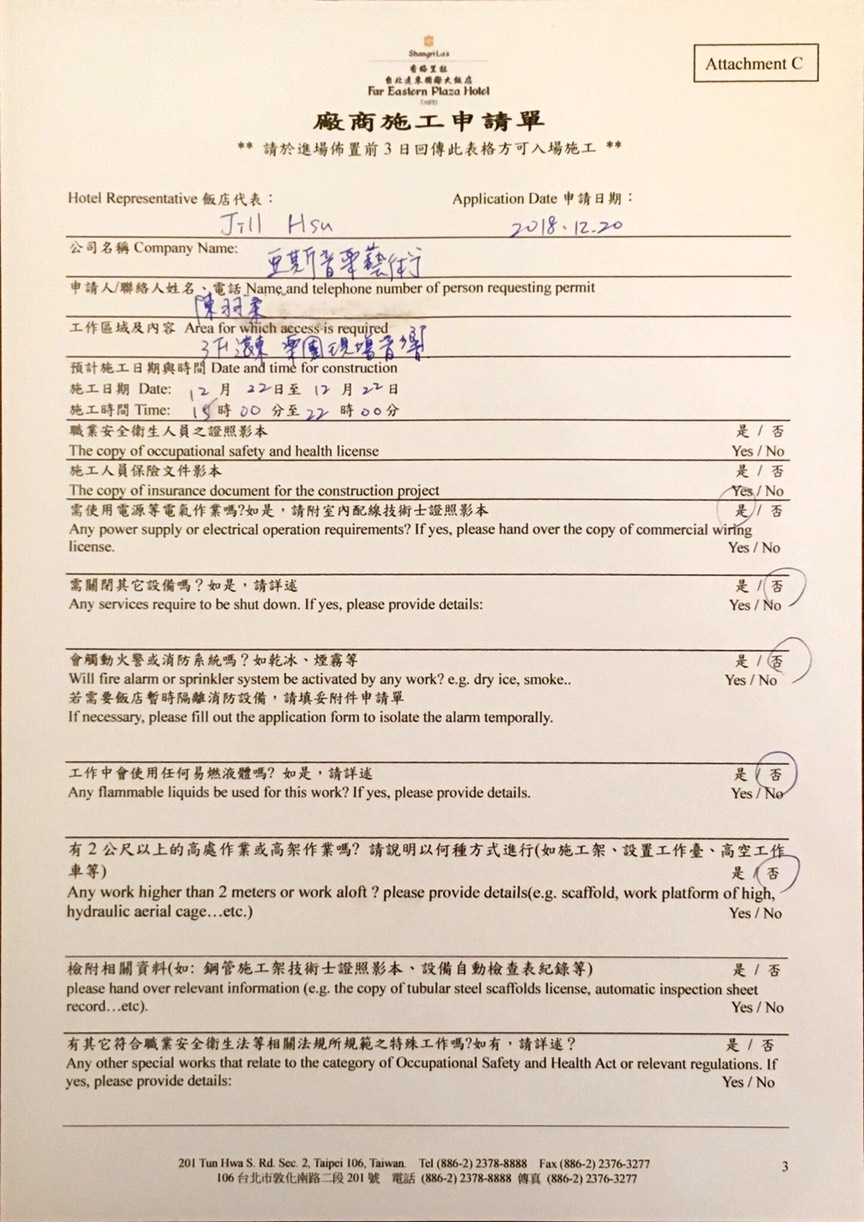 Shangri-La's
香格里拉
台北遠東國際大飯店
Far Eastern Plaza Hotel
TAIPEI
Attachment C
廠商施工申請單
** 請於進場佈置前 3 日回傳此表格方可入場施工 **
Hotel Representative 飯店代表： Application Date 申請日期：
Jill Hsu 2018.12.20
公司名稱 Company Name:
亞斯音樂藝術
申請人/聯絡人姓名、電話 Name and telephone number of person requesting permit
陳羽柔
工作區域及內容 Area for which access is required
3F 遠東 樂團現場音響
預計施工日期與時間 Date and time for construction
施工日期 Date: 12 月 22 日至 12 月 22 日
施工時間 Time: 15 時 00 分至 22 時 00 分
職業安全衛生人員之證照影本 是 / 否
The copy of occupational safety and health license Yes / No
施工人員保險文件影本 是 / 否
The copy of insurance document for the construction project Yes / No
需使用電源等電氣作業嗎?如是，請附室內配線技術士證照影本 是 / 否
Any power supply or electrical operation requirements? If yes, please hand over the copy of commercial wiring
license. Yes / No
需關閉其它設備嗎？如是，請詳述 是 / 否
Any services require to be shut down. If yes, please provide details: Yes / No
會觸動火警或消防系統嗎？如乾冰、煙霧等 是 / 否
Will fire alarm or sprinkler system be activated by any work? e.g. dry ice, smoke.. Yes / No
若需要飯店暫時隔離消防設備，請填妥附件申請單
If necessary, please fill out the application form to isolate the alarm temporally.
工作中會使用任何易燃液體嗎? 如是，請詳述 是 / 否
Any flammable liquids be used for this work? If yes, please provide details. Yes / No
有 2 公尺以上的高處作業或高架作業嗎? 請說明以何種方式進行(如施工架、設置工作臺、高空工作
車等) 是 / 否
Any work higher than 2 meters or work aloft ? please provide details(e.g. scaffold, work platform of high,
hydraulic aerial cage…etc.) Yes / No
檢附相關資料(如: 鋼管施工架技術士證照影本、設備自動檢查表紀錄等) 是 / 否
please hand over relevant information (e.g. the copy of tubular steel scaffolds license, automatic inspection sheet
record…etc). Yes / No
有其它符合職業安全衛生法等相關法規所規範之特殊工作嗎?如有，請詳述？ 是 / 否
Any other special works that relate to the category of Occupational Safety and Health Act or relevant regulations. If
yes, please provide details: Yes / No
201 Tun Hwa S. Rd. Sec. 2, Taipei 106, Taiwan. Tel (886-2) 2378-8888 Fax (886-2) 2376-3277
106 台北市敦化南路二段 201 號 電話 (886-2) 2378-8888 傳真 (886-2) 2376-3277
3